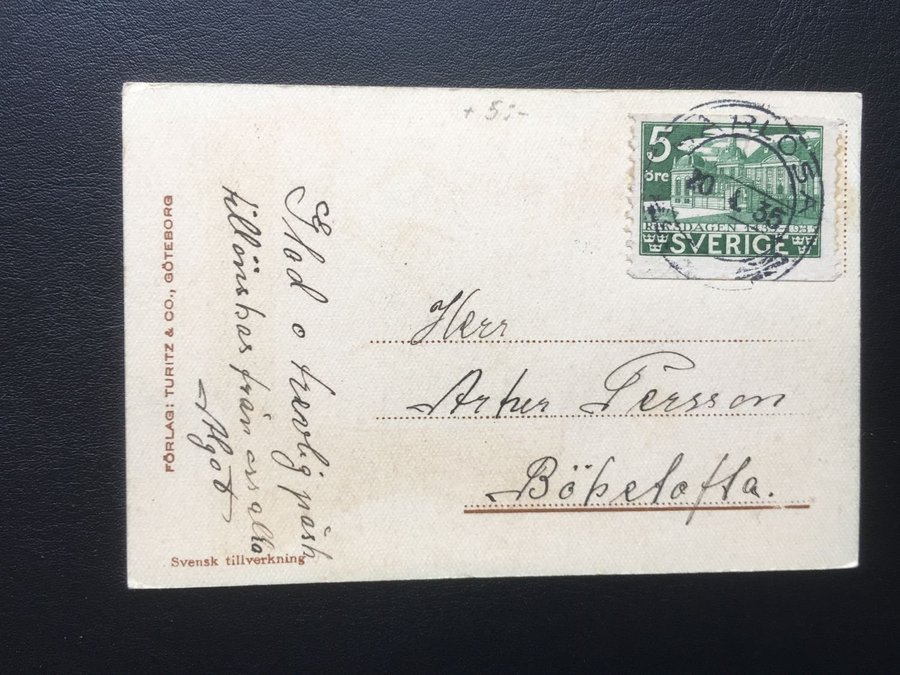 + 5:-
5
öre
RIKSDAGEN 1435-1935
SVERIGE
RLÖSA
20 35
Herr
Artur Persson
Böketofta.
Glad o trevlig påsk
tillönskas från oss alla
Algot
FÖRLAG: TURITZ & CO., GÖTEBORG
Svensk tillverkning